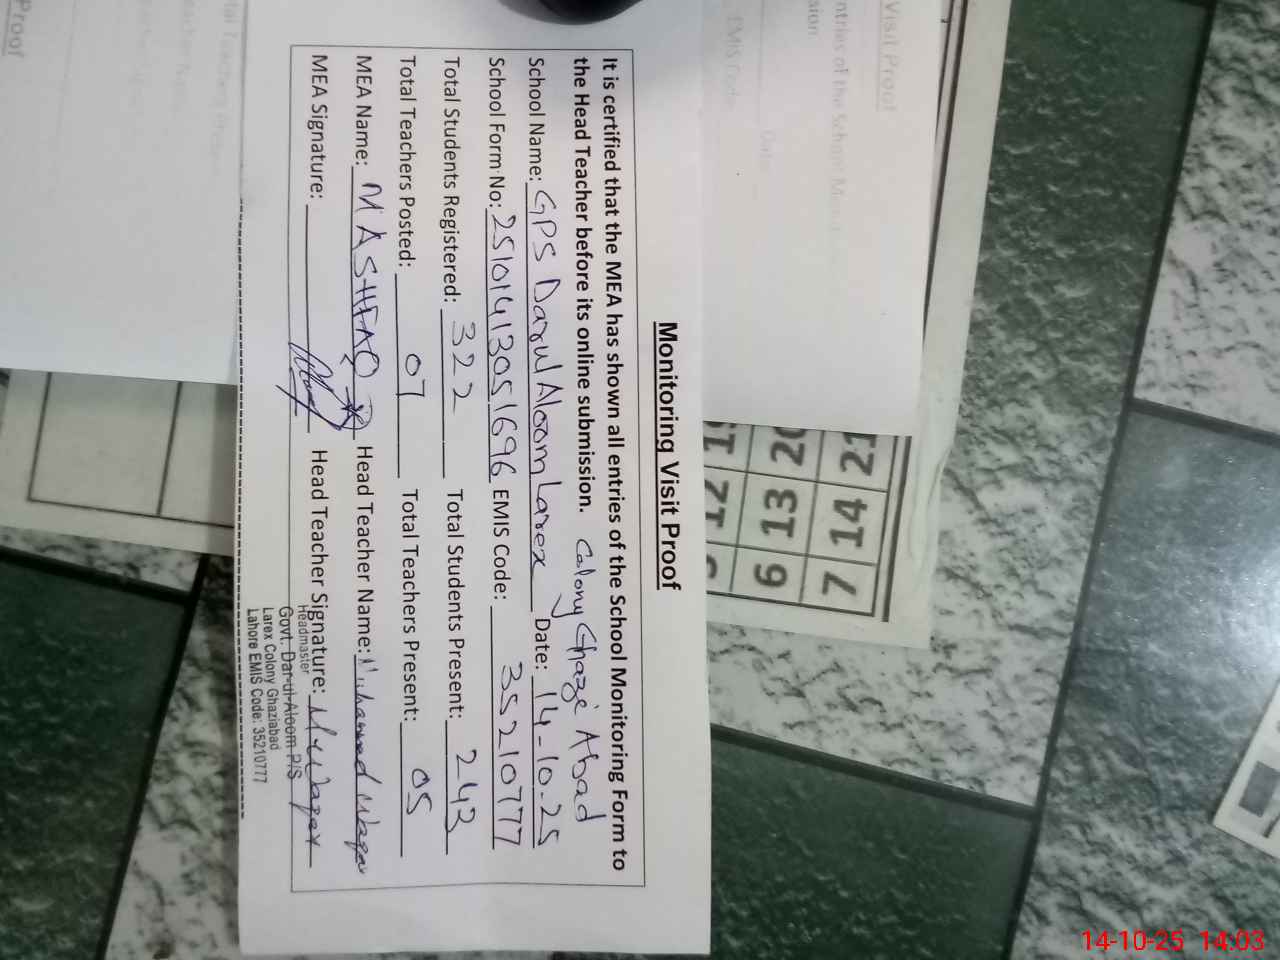 Monitoring Visit Proof
It is certified that the MEA has shown all entries of the School Monitoring Form to
the Head Teacher before its online submission. Colony Ghazi Abad
School Name: GPS Darul Aloom Larex Date: 14-10-25
School Form No: 25101413051696 EMIS Code: 35210777
Total Students Registered: 322 Total Students Present: 243
Total Teachers Posted: 07 Total Teachers Present: 05
MEA Name: M ASHFAQ Head Teacher Name: Muhammad Waqar
MEA Signature: Head Teacher Signature: M. Waqar
Headmaster
Govt. Dar-ul-Aloom P/S
Larex Colony Ghaziabad
Lahore EMIS Code: 35210777
Visit Proof
ntries of the School M
EMIS Code
Date:
Proof
21 14 7
20 13 6
12
14-10-25 14:03